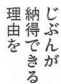 じぶんが
納得できる
理由を